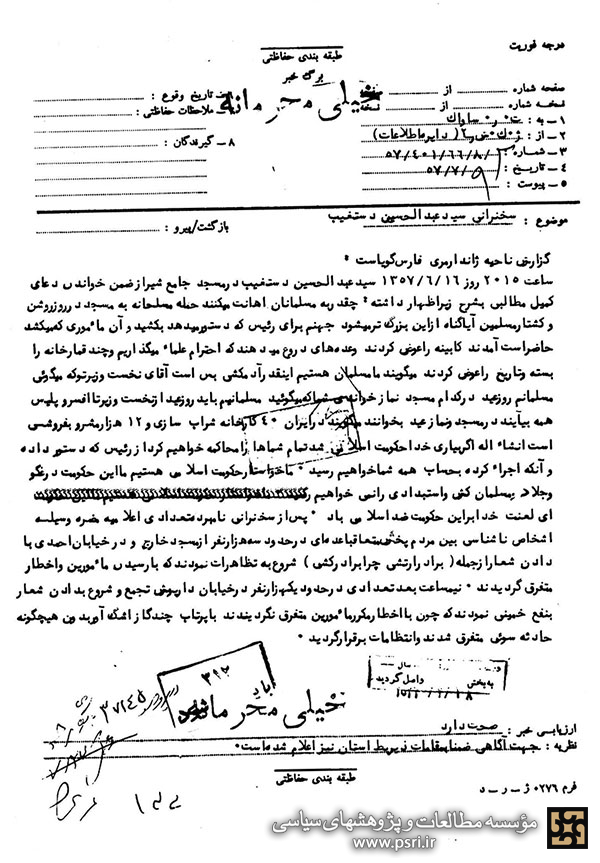 درجه فوریت
طبقه بندی حفاظتی
برگ خبر
خیلی محرمانه
صفحه شماره : از :
نسخه شماره : از : نسخه
۱ - به : ت . ر . ساواک
۲ - از :
۳ - شماره : ۵۷/۴۰۱/۶۶/۸/
۴ - تاریخ : ۵۷/۷/۵
۵ - پیوست :
تاریخ وقوع :
ملاحظات حفاظتی :
۸ - گیرندگان :
موضوع : سخنرانی سید عبدالحسین دستغیب بازگشت/پیرو :
گزارش ناحیه ژاندارمری فارس گویاست *
ساعت ۲۰۱۵ روز ۱۳۵۷/۶/۱۶ سید عبدالحسین دستغیب در مسجد جامع شیراز ضمن خواندن دعای
کمیل مطالبی بشرح زیر اظهار داشته : چقدر به مسلمانان اهانت میکنند حمله مسلحانه به مسجد در روز روشن
و کشتار مسلمین آیا گناه از این بزرگ تر میشود جهنم برای رئیس که دستور میدهد بکشید و آن مأموری که میکشد
حاضر است آمدند کابینه را عوض کردند وعده های دروغ میدهند که احترام علماء میگذاریم و چند قمارخانه را
بسته و تاریخ را عوض کردند میگویند ما مسلمان هستیم اینقدر آدمکشی بس است آقای نخست وزیر تو که میگوئی
مسلمانم روز عید در کدام مسجد نماز خواندی شما که میگوئید مسلمانیم باید روز عید از نخست وزیر تا افسر و پلیس
همه بیایند در مسجد و نماز عید بخوانند میگویند در ایران ۴۰ کارخانه شراب سازی و ۱۲ هزار مشروبفروشی
است انشاء اله اگر بیاری خدا حکومت اسلامی شد تمام شماها را محاکمه خواهیم کرد از رئیس که دستور داده
و آنکه اجراء کرده بحساب همه شما خواهیم رسید * ما خواستار حکومت اسلامی هستیم ما این حکومت دروغگو
و جلاد و مسلمان کش و استبدادی را نمی خواهیم
ای لعنت خدا بر این حکومت ضد اسلامی باد * پس از سخنرانی نامبرده تعدادی اعلامیه مضره وسیله
اشخاص ناشناسی بین مردم پخش متعاقبا عده ای در حدود سه هزار نفر از مسجد خارج و در خیابان احمدی با
دادن شعار از جمله ( برادر ارتشی چرا برادر کشی ) شروع به تظاهرات نمودند که با رسیدن مأمورین و اخطار
متفرق گردیدند * نیمساعت بعد تعدادی در حدود یکهزار نفر در خیابان داریوش تجمع و شروع بدادن شعار
بنفع خمینی نمودند که چون با اخطار مکرر مأمورین متفرق نگردیدند با پرتاب چند گاز اشک آور بدون هیچگونه
حادثه سوئی متفرق شدند و انتظامات برقرار گردید *
۳۱۲
خیلی محرمانه
سال
به بخش واصل گردید
ارزیابی خبر : صحت دارد
نظریه : جهت آگاهی ضمنا بمقامات ذیربط استان نیز اعلام شده است *
طبقه بندی حفاظتی
فرم ۰۲۷۶ ژ - ر - د
مؤسسه مطالعات و پژوهشهای سیاسی
www.psri.ir